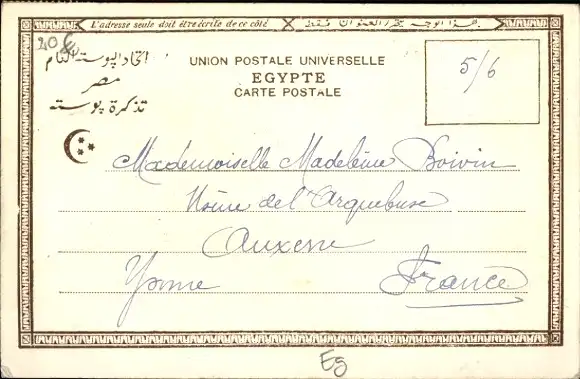 L'adresse seule doit être écrite de ce côté
هذا الوجه يحرر العنوان فقط
20
اتحاد البوسته العام
مصر
تذكرة بوسته
UNION POSTALE UNIVERSELLE
EGYPTE
CARTE POSTALE
5/6
Mademoiselle Madeleine Boivin
Usine de l'Arquebuse
Auxerre
Yonne
France
Eg